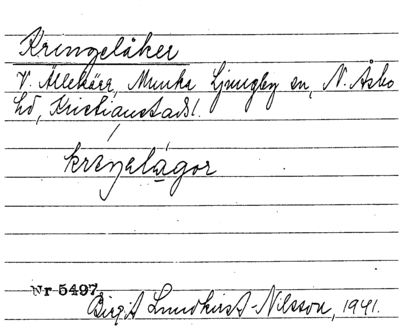 Kringelåker
V. Ällekärr, Munka Ljungby sn, N. Åsbo
hd, Kristianstads l.
kriŋelågor
Nr 5497.
Birgit Lundkvist-Nilsson, 1941.